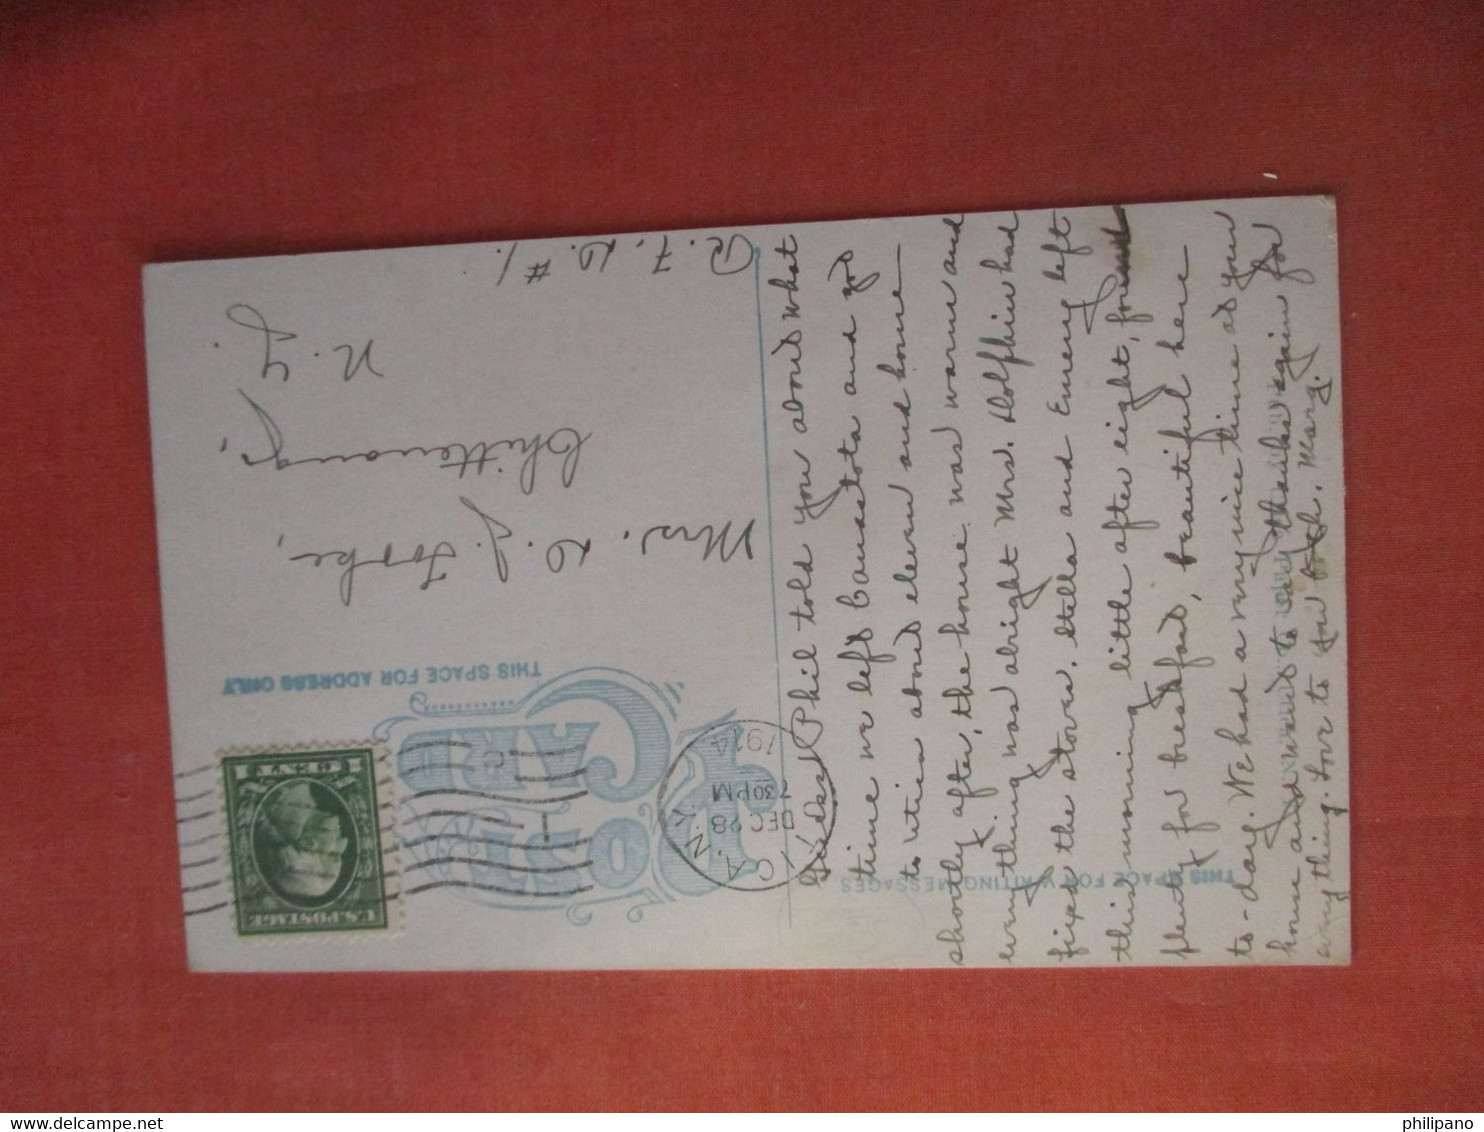 POST CARD
THIS SPACE FOR ADDRESS ONLY
THIS SPACE FOR WRITING MESSAGES
UTICA, N.Y.
DEC 28
7 30 PM
1914
U.S. POSTAGE
1 CENT 1
Mrs. D. J.
Chittenango,
N. Y.
R. F. D. #1.
Phil told you about what
time we left Canastota and got
to Utica about eleven and home
shortly after, the house was warm and
everything was alright Mrs. Dolphin had
fixed the stoves. Stella and Emery left
this morning little after eight, found
plenty for breakfast, beautiful here
to-day. We had a very nice time at your
house and want to say thanks again for
everything. Love to you both. Marg.
philipano